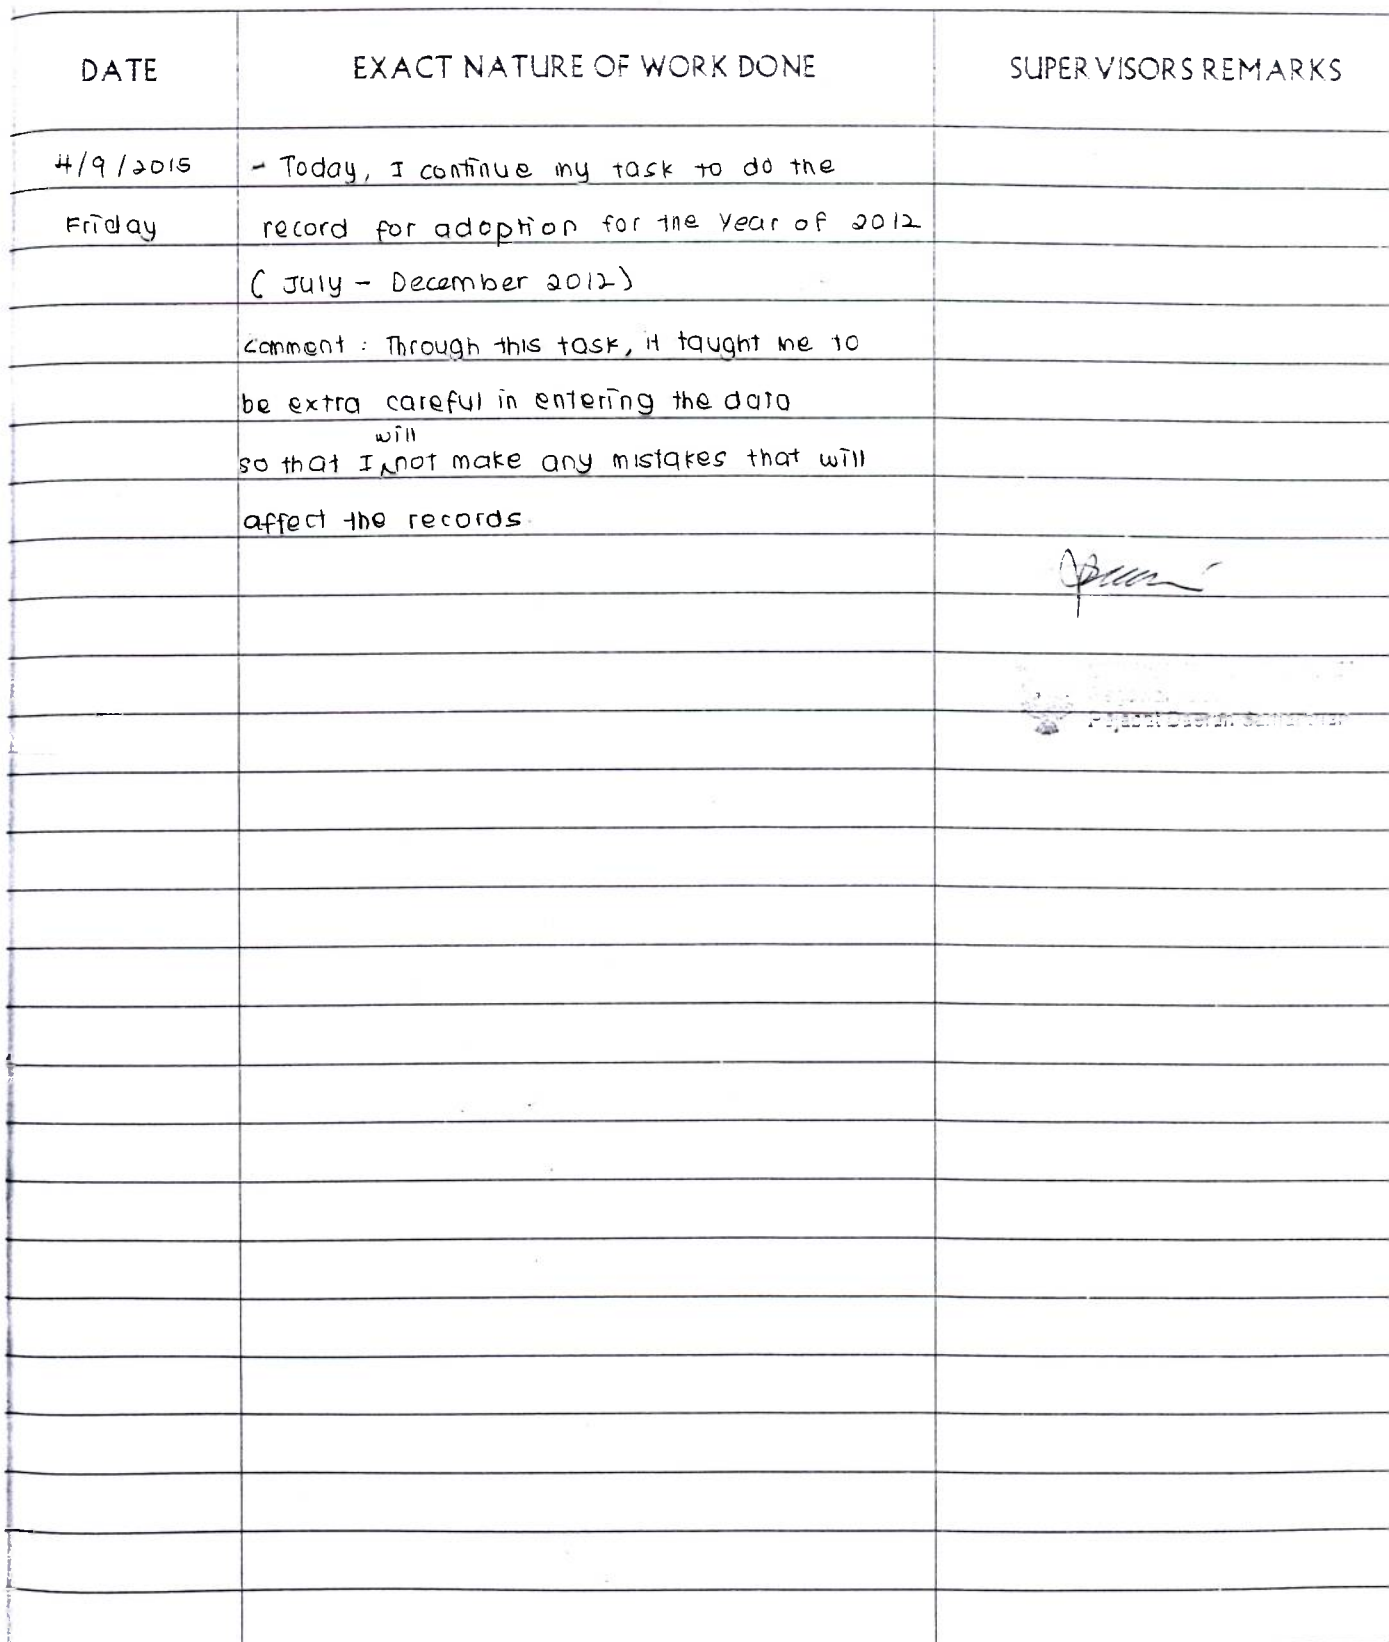 DATE EXACT NATURE OF WORK DONE SUPERVISORS REMARKS
4/9/2015 - Today, I continue my task to do the
Friday record for adoption for the year of 2012
( July - December 2012)
comment : Through this task, it taught me to
be extra careful in entering the data
will
so that I not make any mistakes that will
affect the records.
Pejabat Daerah